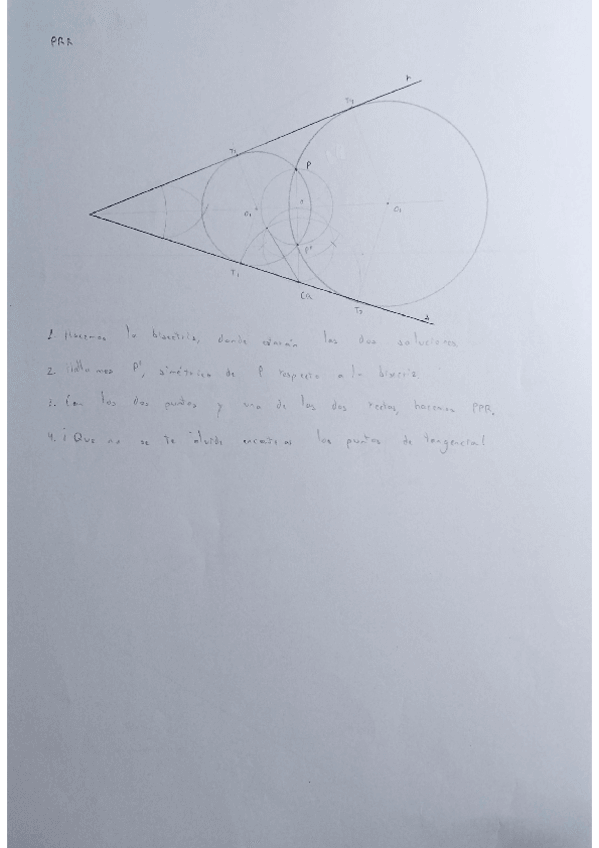 PRR
r
T2
T1
P
O1
O2
P'
T1
CR
T2
s
1. Hacemos la bisectriz, donde estarán las dos soluciones
2. Hallamos P', simétrico de P respecto a la
3. Con los dos puntos y una de las dos rectas, hacemos PPR.
4. ¡Que no se te olvide encontrar los puntos de tangencia!